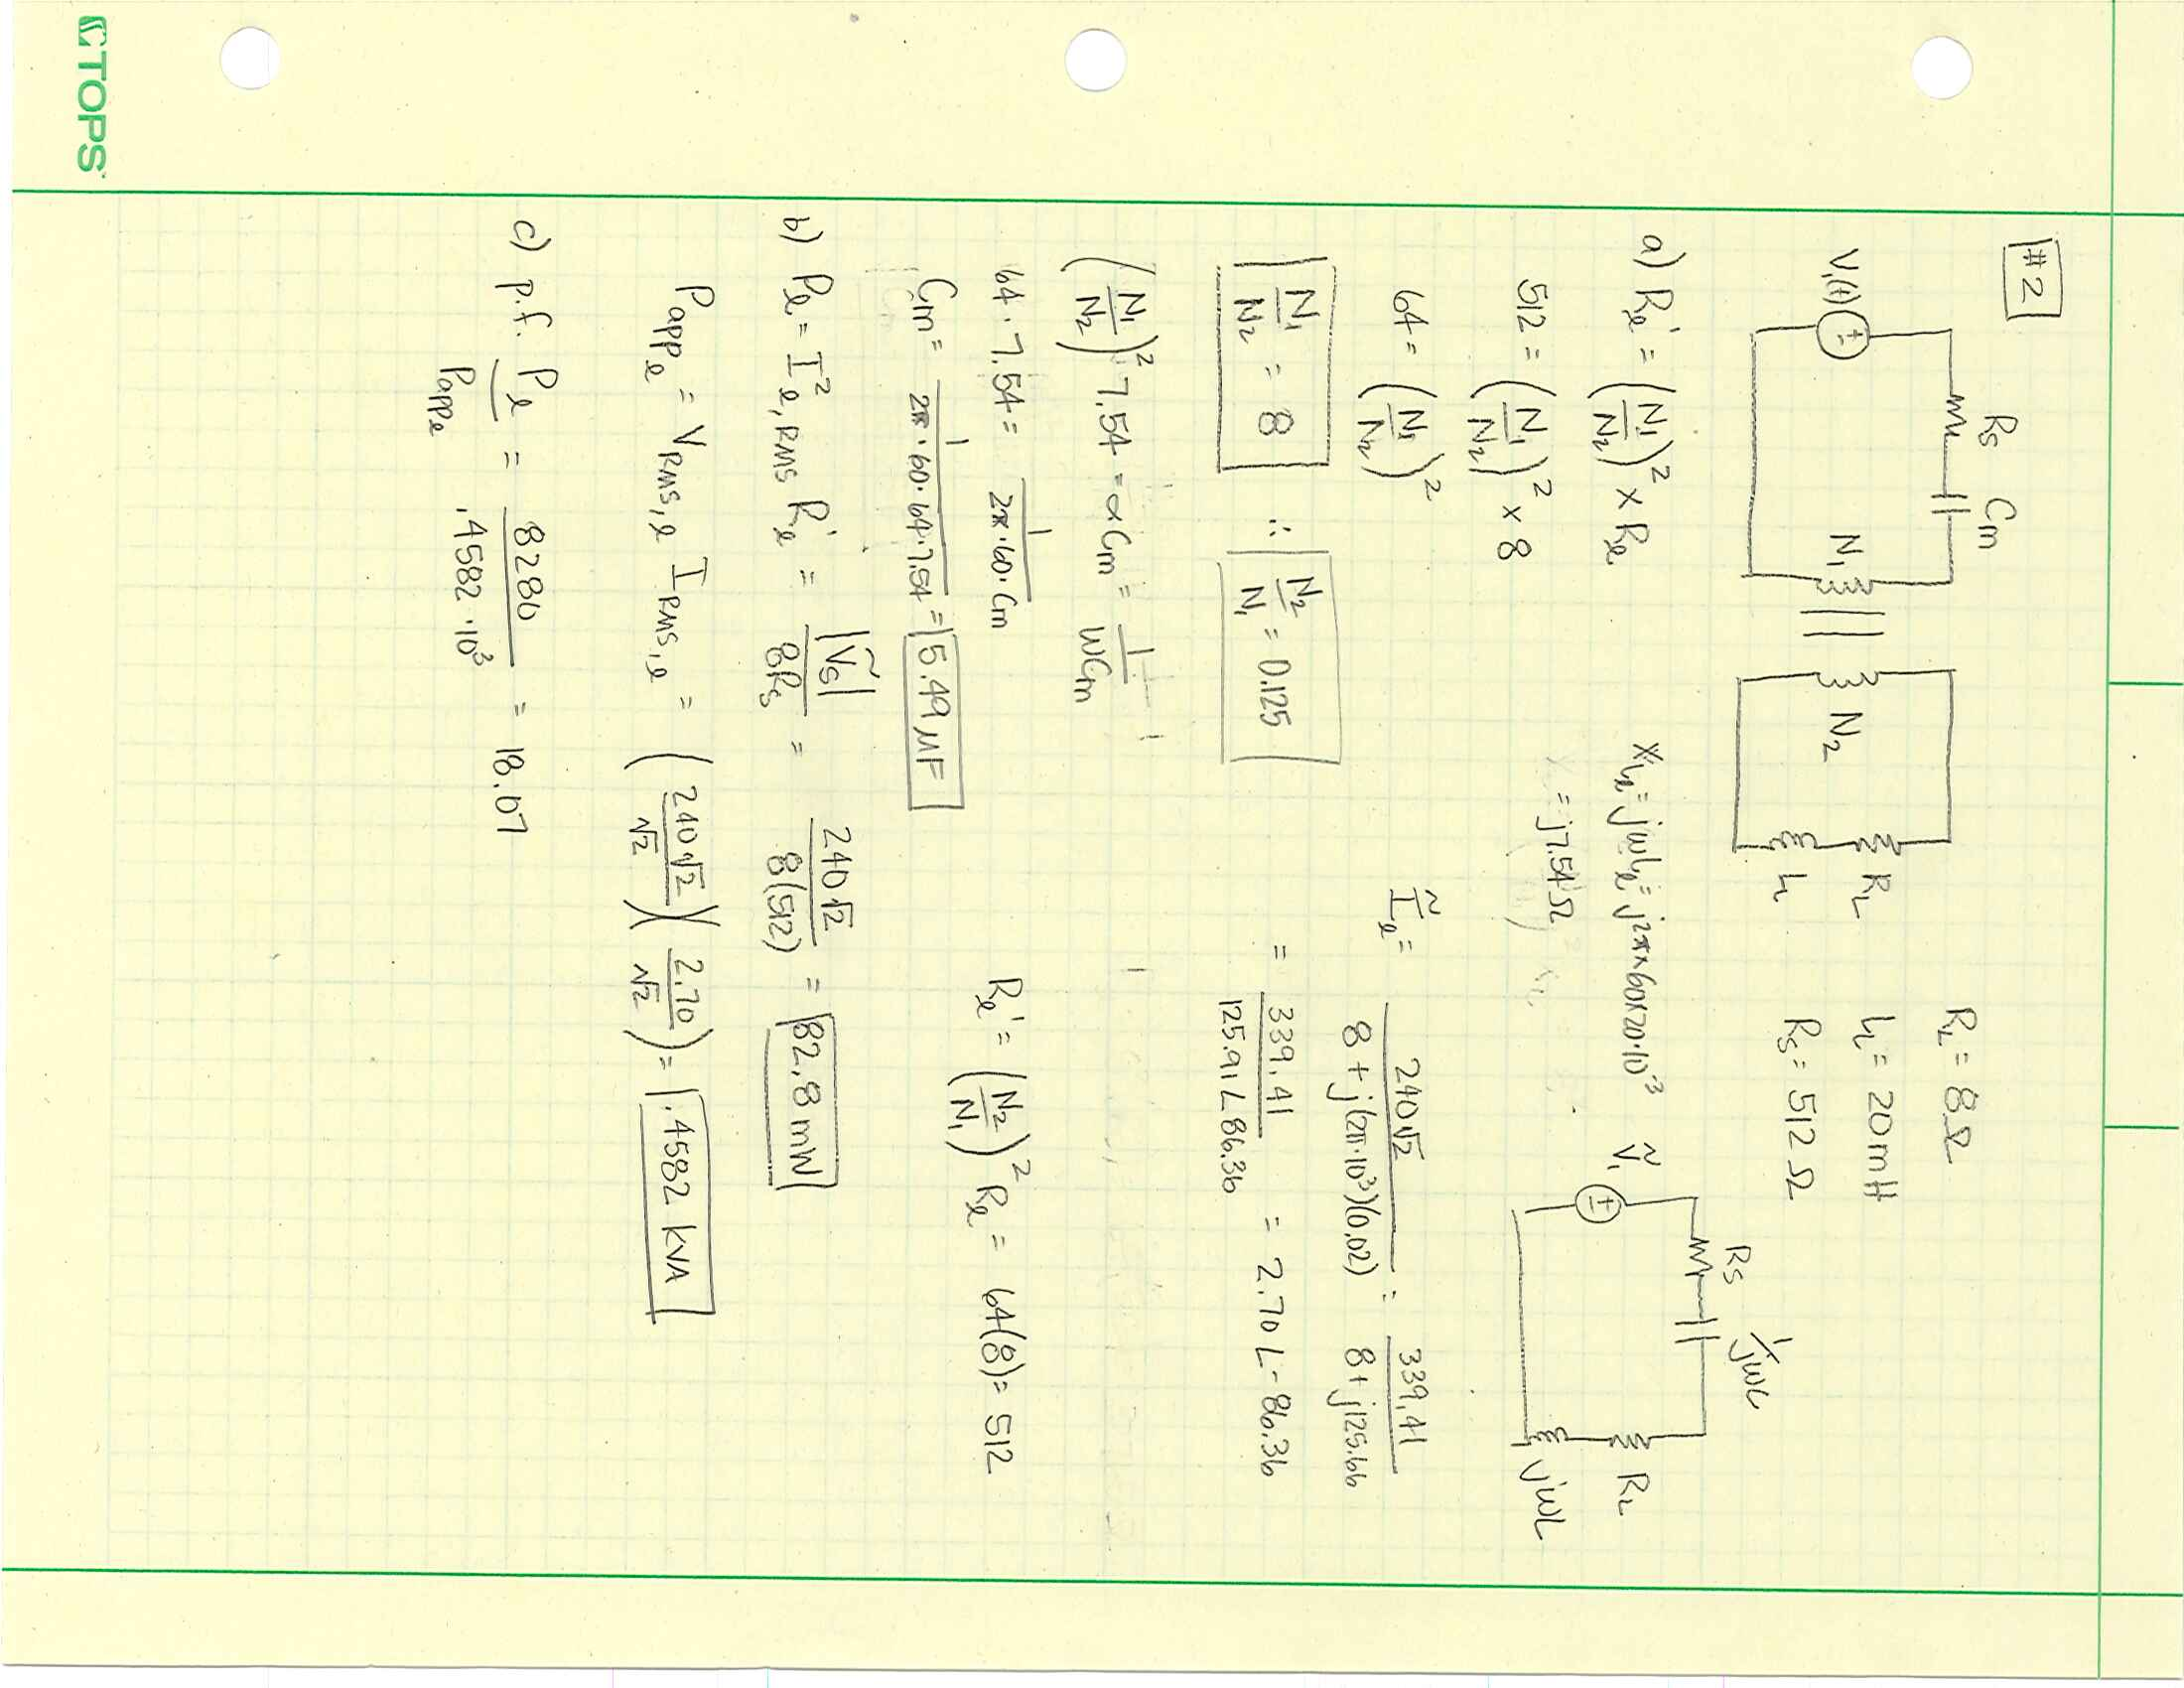 #2
V₁(t) ± Rs Cm N₁ N₂ RL L
RL = 8Ω
LL = 20mH
Rs = 512 Ω
a) Rℓ' = (N₁/N₂)² × Rℓ
512 = (N₁/N₂)² × 8
64 = (N₁/N₂)²
N₁/N₂ = 8 ∴ N₂/N₁ = 0.125
XLℓ = jωLℓ = j2π×60×20·10⁻³
= j7.54Ω
Ṽ₁ ± Rs 1/jωC RL jωL
Ĩℓ = 240√2 / 8 + j(2π·10³)(0.02) = 339.41 / 8 + j125.66
= 339.41 / 125.91∠86.36 = 2.70∠-86.36
(N₁/N₂)² 7.54 = αCm = 1/ωCm
64 · 7.54 = 1 / 2π·60·Cm
Cm = 1 / 2π·60·64·7.54 = 5.49 μF
Rℓ' = (N₂/N₁)² Rℓ = 64(8) = 512
b) Pℓ = I²ℓ,RMS Rℓ' = |Ṽs| / 8Rs = 240√2 / 8(512) = 82.8 mW
Pappℓ = VRMS,ℓ IRMS,ℓ = (240√2/√2)(2.70/√2) = .4582 kVA
c) p.f. Pℓ / Pappℓ = 8280 / .4582·10³ = 18.07
TOPS